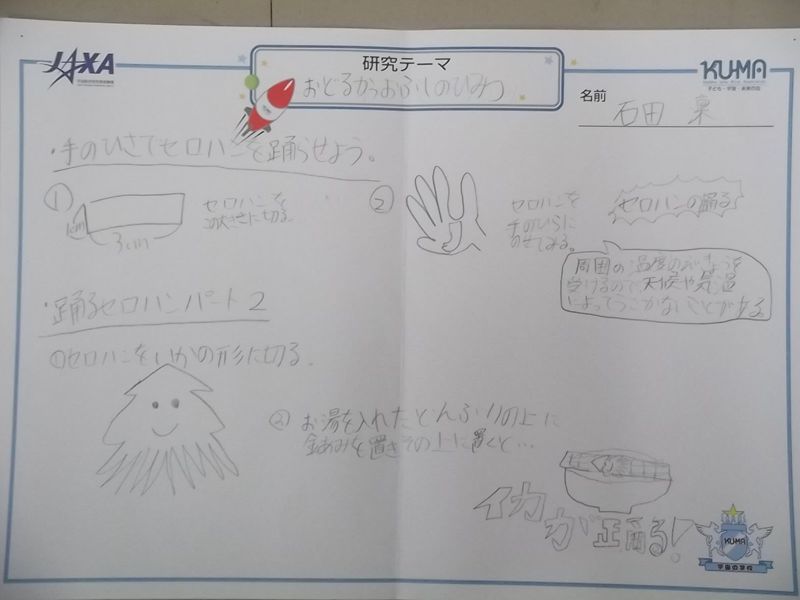 JAXA
研究テーマ
おどるかつおぶしのひみつ
KU-MA
子ども・宇宙・未来の会
名前
石田
・手のひらでセロハンを踊らせよう。
①
1cm
3cm
セロハンを
この大きさに切る。
②
セロハンを
手のひらに
のせてみる。
セロハンの踊る
周囲の温度のえいきょうを
受けるので天候や気温
によってうごかないことがある
・踊るセロハンパート2
①セロハンをいかの形に切る。
② お湯を入れたどんぶりの上に
金あみを置きその上に置くと…
イカが踊る!
KUMA
宇宙の学校